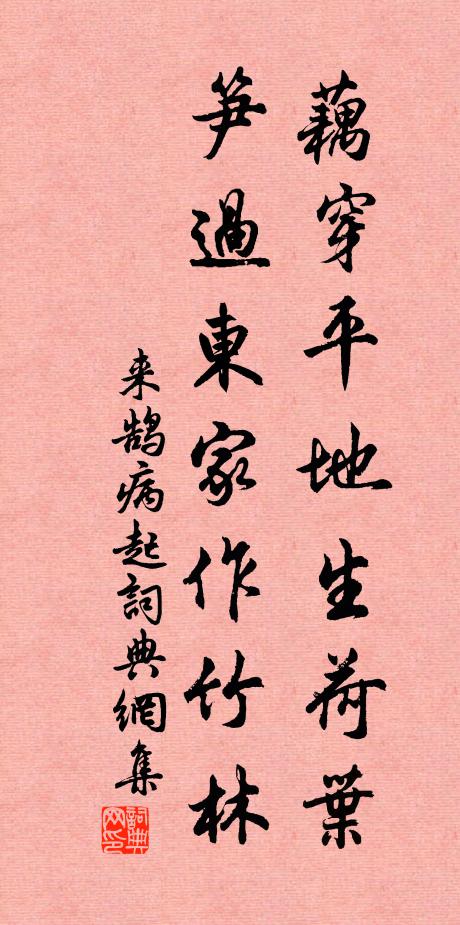 藕穿平地生荷葉
笋過東家作竹林
来鵠病起詞典網集
詞典网印